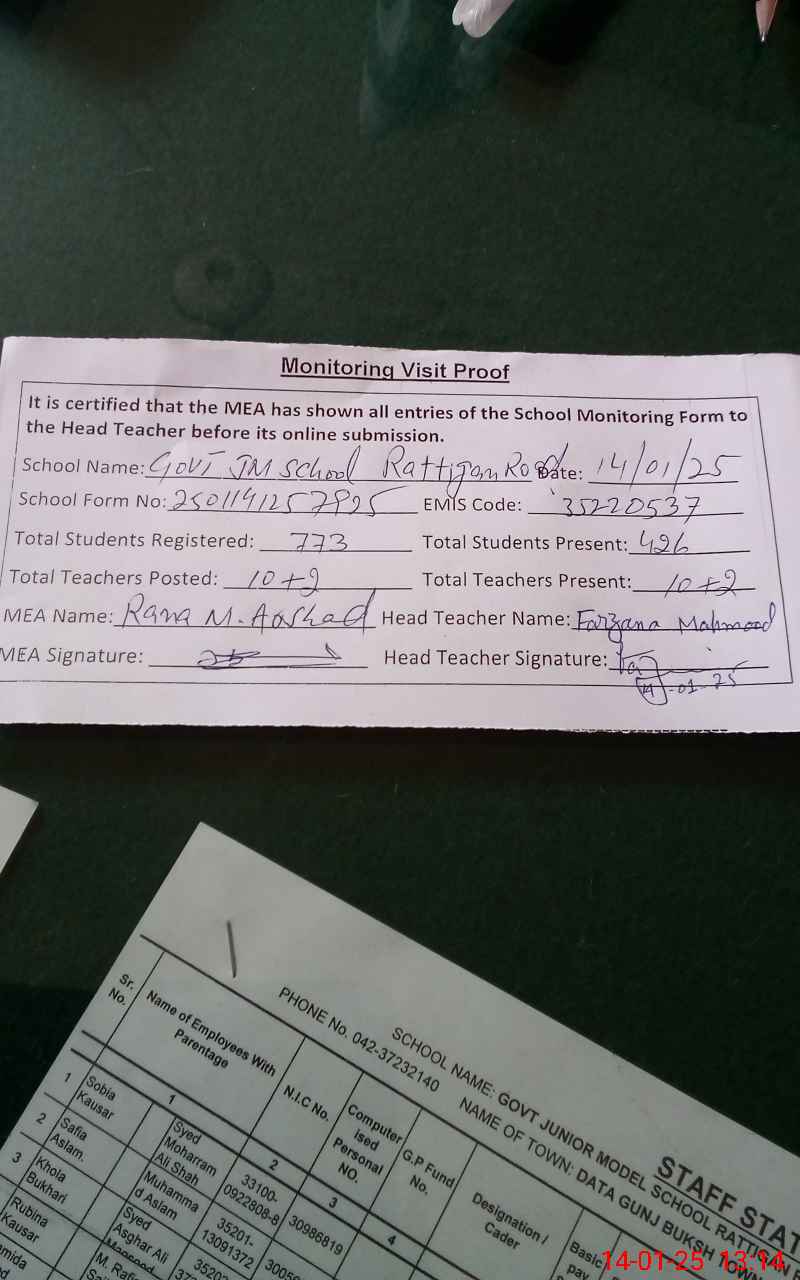 Monitoring Visit Proof
It is certified that the MEA has shown all entries of the School Monitoring Form to
the Head Teacher before its online submission.
School Name: GOVT JM School Rattigan Road Date: 14/01/25
School Form No: 2501141257925 EMIS Code: 35220537
Total Students Registered: 773 Total Students Present: 426
Total Teachers Posted: 10+2 Total Teachers Present: 10+2
MEA Name: Rana M. Aashad Head Teacher Name: Farzana Mahmood
MEA Signature: Head Teacher Signature:
14-01-25
STAFF STAT
SCHOOL NAME: GOVT JUNIOR MODEL SCHOOL
PHONE No. 042-37232140 NAME OF TOWN: DATA GUNJ BUKSH TOWN
Sr. No. Name of Employees With Parentage N.I.C No. Computer ised Personal NO. G.P Fund No. Designation / Cader Basic pay
1 2 3 4
1 Sobia Kausar Syed Moharram Ali Shah 33100-0922808-8 30986819
2 Safia Aslam. Muhamma d Aslam 35201-13091372
3 Khola Bukhari Syed Asghar Ali
Rubina Kausar
14-01-25 13:14